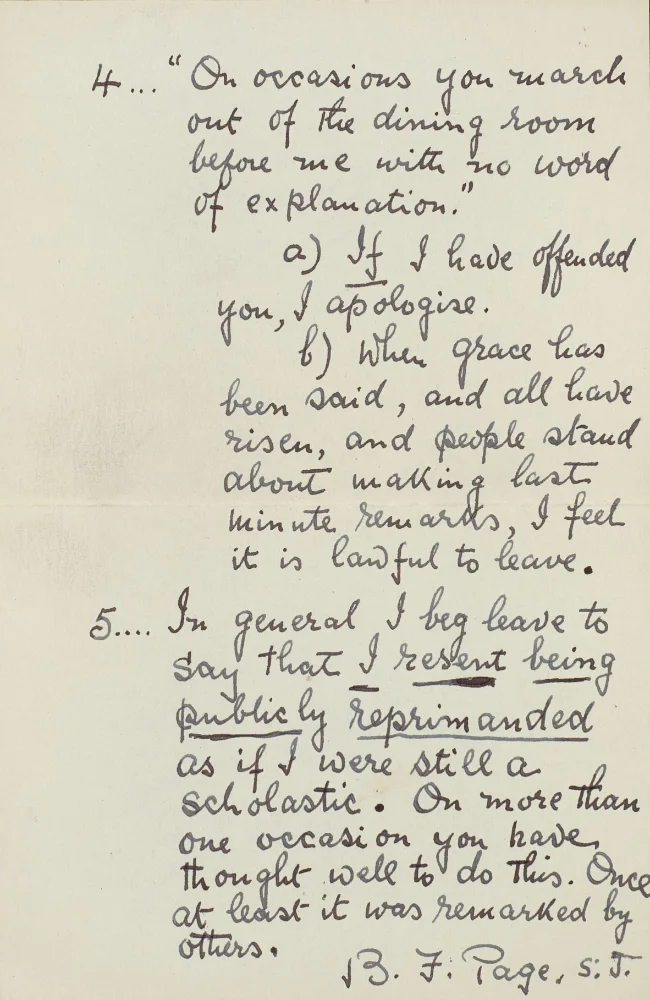 4... "On occasions you march
out of the dining room
before me with no word
of explanation."
a) If I have offended
you, I apologise.
b) When grace has
been said, and all have
risen, and people stand
about making last
minute remarks, I feel
it is lawful to leave.
5.... In general I beg leave to
say that I resent being
publicly reprimanded
as if I were still a
scholastic. On more than
one occasion you have
thought well to do this. Once
at least it was remarked by
others.
B. F. Page, S.J.